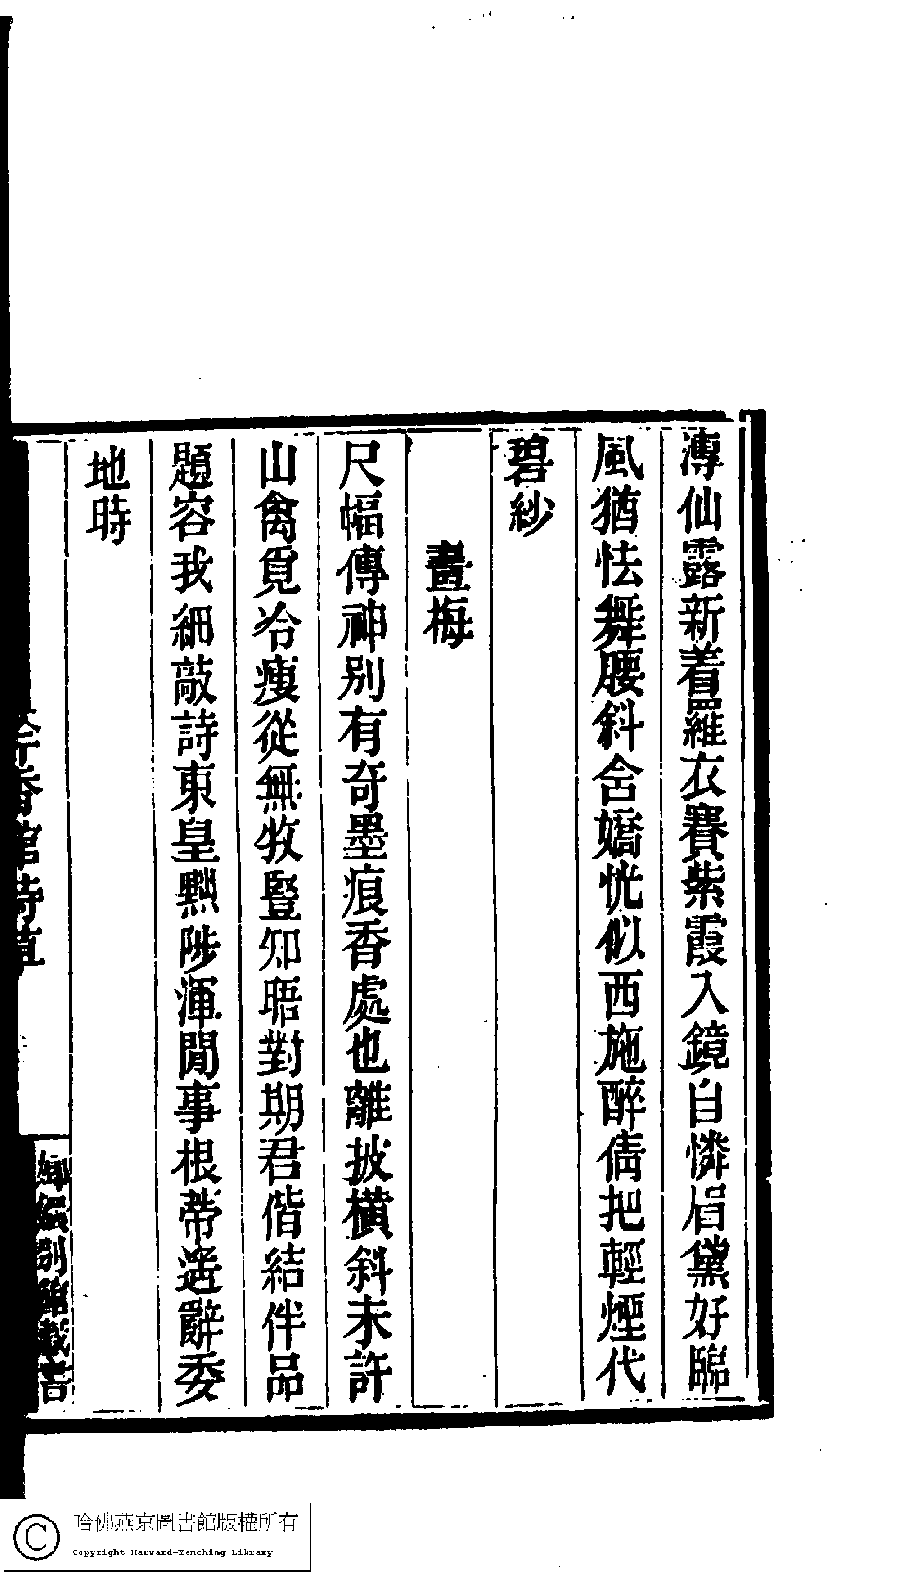 溥仙露新着羅衣賽紫霞入鏡自憐眉黛好臨
風猶怯舞腰斜舍嬌恍似西施醉倩把輕煙代
碧紗
畫梅
尺幅傳神别有奇墨痕香處也離披橫斜未許
山禽覓冷瘦從無牧豎知晤對期君偕結伴品
題容我細敲詩東皇黜陟渾閒事根蒂遙辭委
地時
香館詩草
嫏嬛别館藏書
哈佛燕京圖書館版權所有
Copyright Harvard-Yenching Library